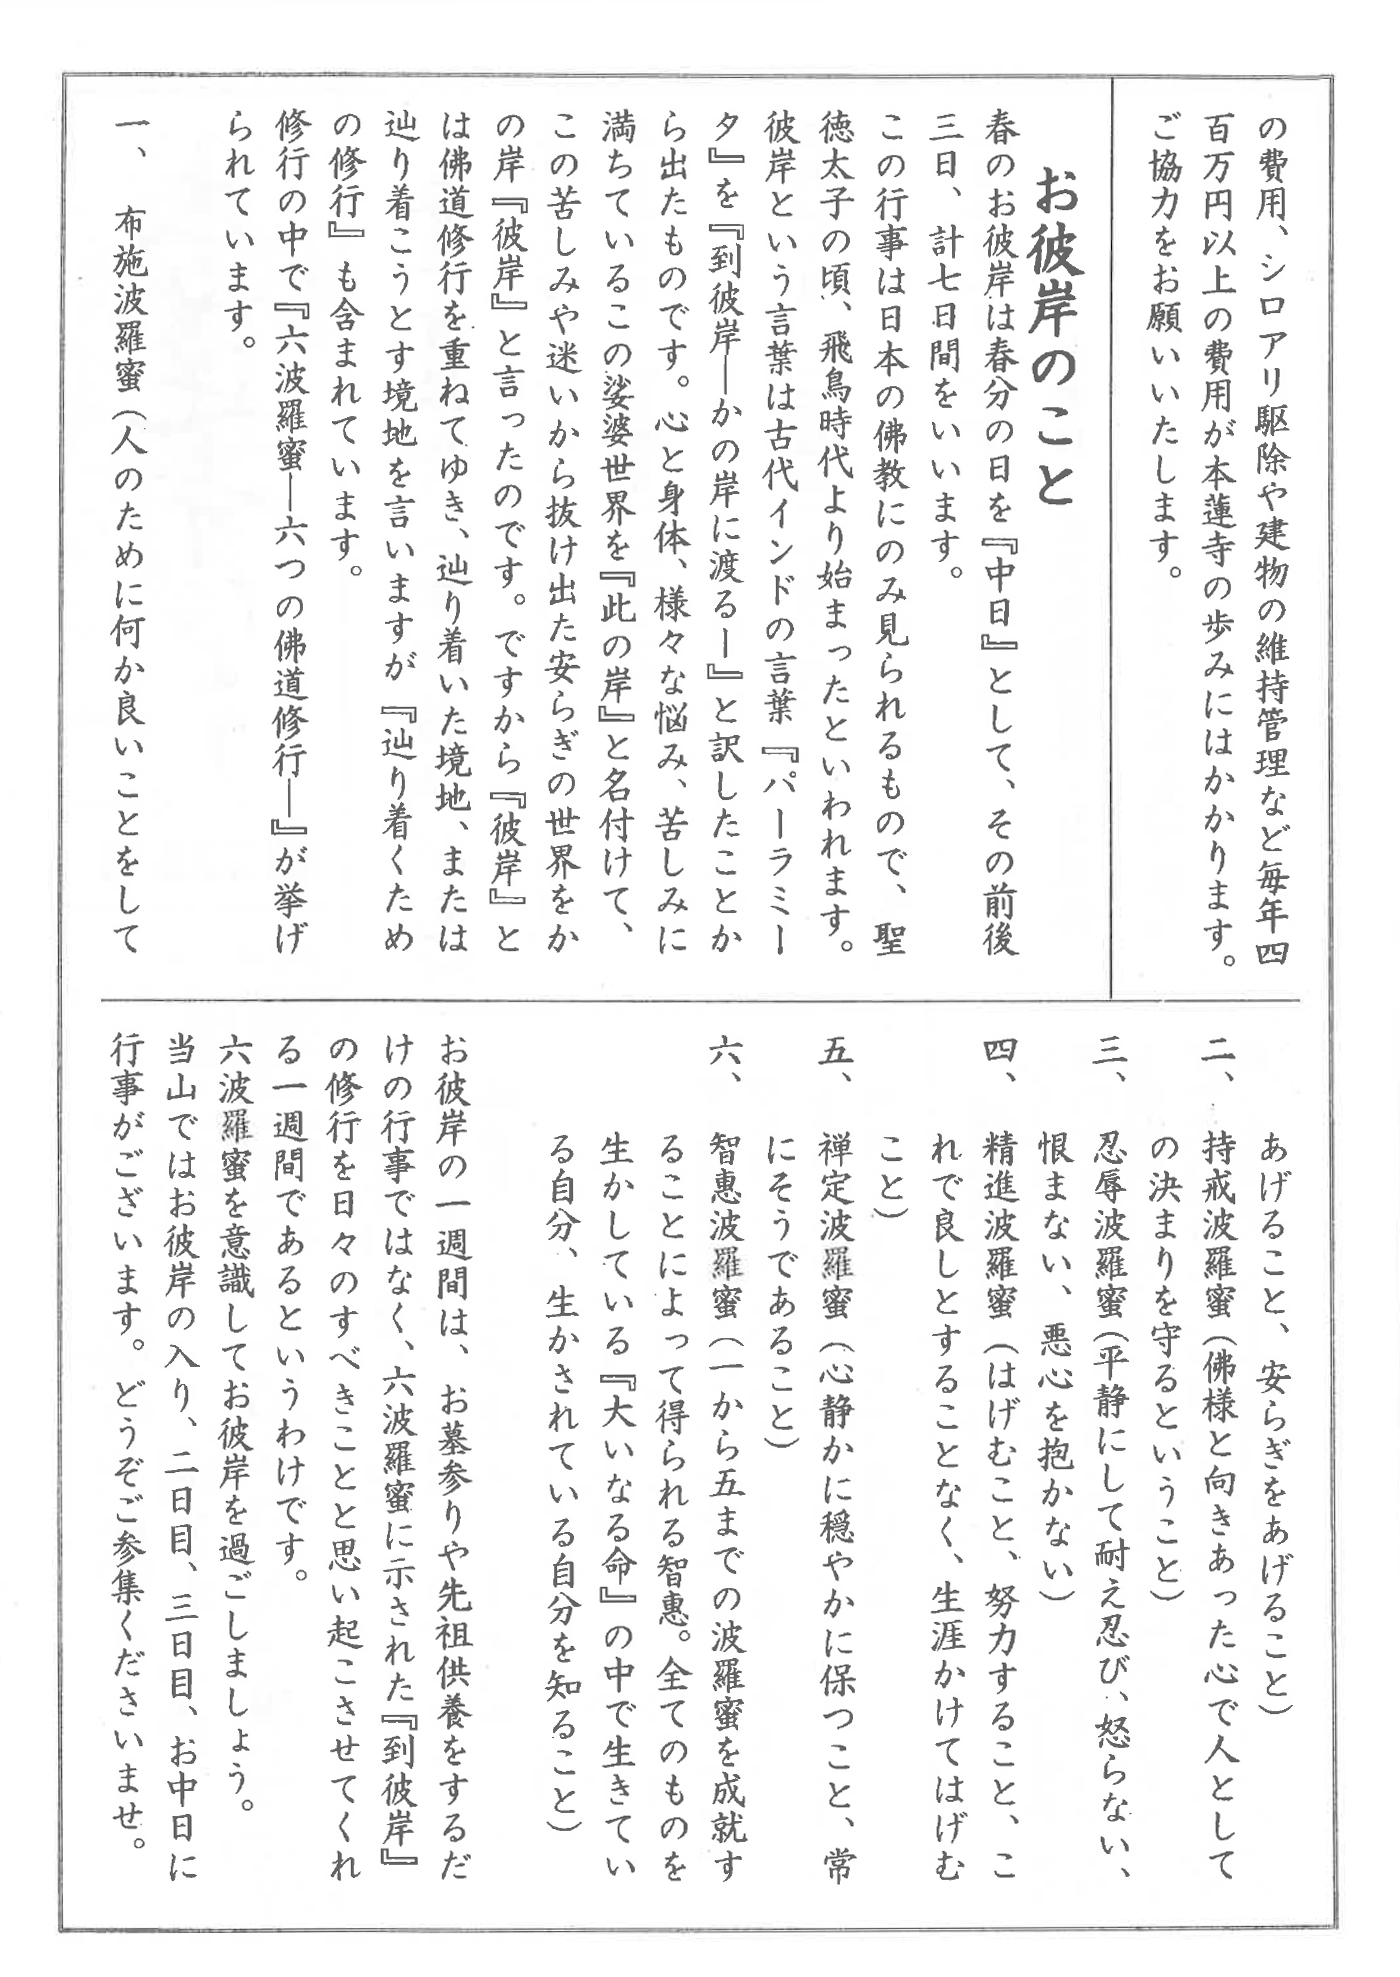 の費用、シロアリ駆除や建物の維持管理など毎年四
百万円以上の費用が本蓮寺の歩みにはかかります。
ご協力をお願いいたします。
お彼岸のこと
春のお彼岸は春分の日を『中日』として、その前後
三日、計七日間をいいます。
この行事は日本の佛教にのみ見られるもので、聖
徳太子の頃、飛鳥時代より始まったといわれます。
彼岸という言葉は古代インドの言葉『パーラミー
タ』を『到彼岸―かの岸に渡るー』と訳したことか
ら出たものです。心と身体、様々な悩み、苦しみに
満ちているこの娑婆世界を『此の岸』と名付けて、
この苦しみや迷いから抜け出た安らぎの世界をか
の岸『彼岸』と言ったのです。ですから『彼岸』と
は佛道修行を重ねてゆき、辿り着いた境地、または
辿り着こうとす境地を言いますが『辿り着くため
の修行』も含まれています。
修行の中で『六波羅蜜―六つの佛道修行―』が挙げ
られています。
一、　布施波羅蜜（人のために何か良いことをして
あげること、安らぎをあげること）
二、　持戒波羅蜜（佛様と向きあった心で人として
の決まりを守るということ）
三、　忍辱波羅蜜（平静にして耐え忍び、怒らない、
恨まない、悪心を抱かない）
四、　精進波羅蜜（はげむこと、努力すること、こ
れで良しとすることなく、生涯かけてはげむ
こと）
五、　禅定波羅蜜（心静かに穏やかに保つこと、常
にそうであること）
六、　智恵波羅蜜（一から五までの波羅蜜を成就す
ることによって得られる智恵。全てのものを
生かしている『大いなる命』の中で生きてい
る自分、生かされている自分を知ること）
お彼岸の一週間は、お墓参りや先祖供養をするだ
けの行事ではなく、六波羅蜜に示された『到彼岸』
の修行を日々のすべきことと思い起こさせてくれ
る一週間であるというわけです。
六波羅蜜を意識してお彼岸を過ごしましょう。
当山ではお彼岸の入り、二日目、三日目、お中日に
行事がございます。どうぞご参集くださいませ。